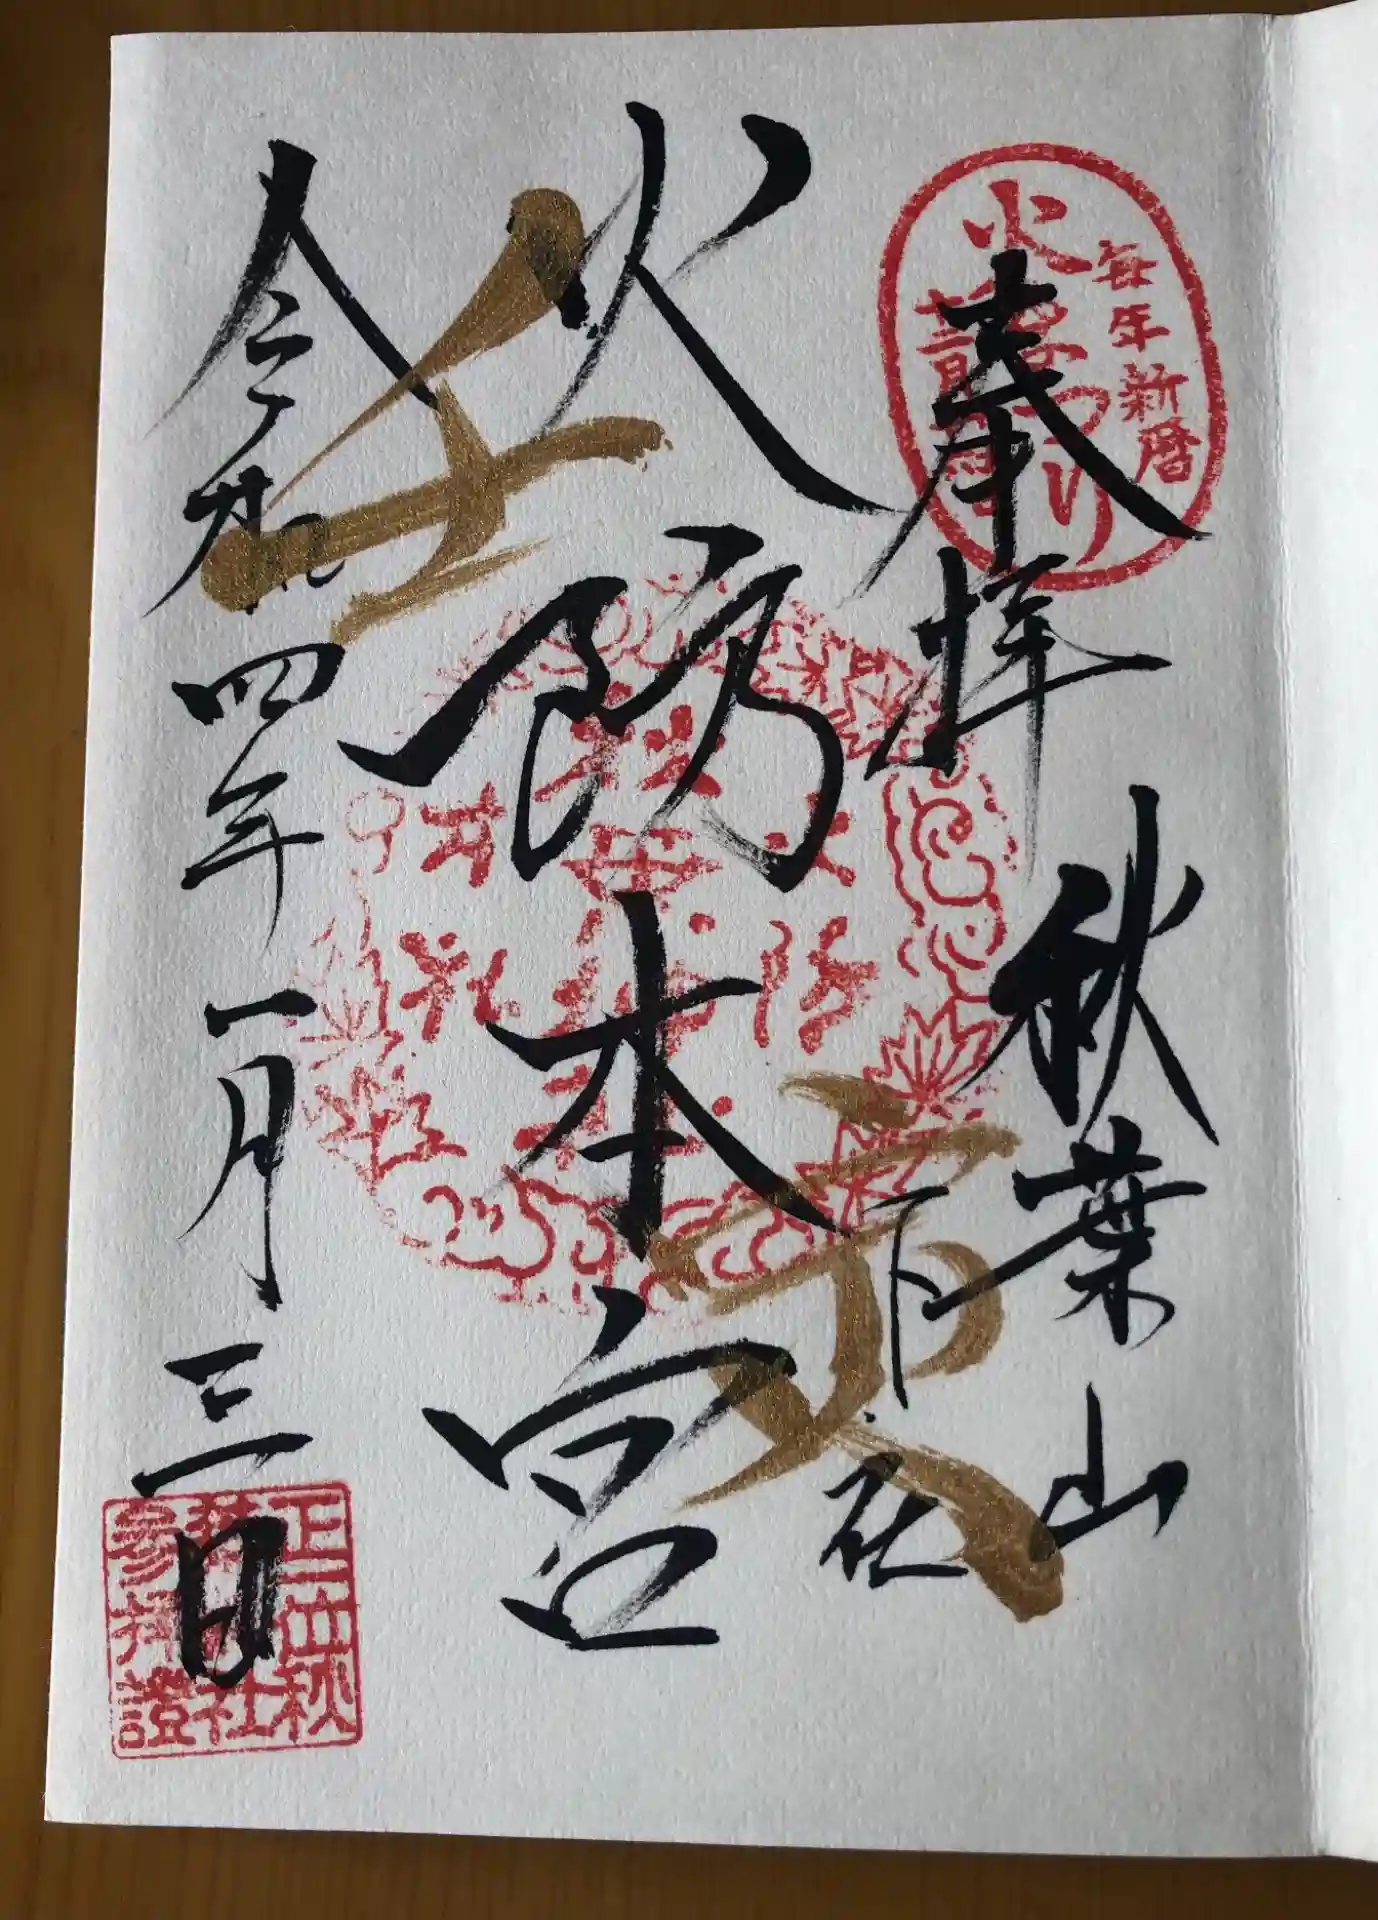 奉拝
秋葉山
下社
火防本宮
壬寅
令和四年一月三日
毎年新暦
火まつり
正一位秋葉神社参拝證